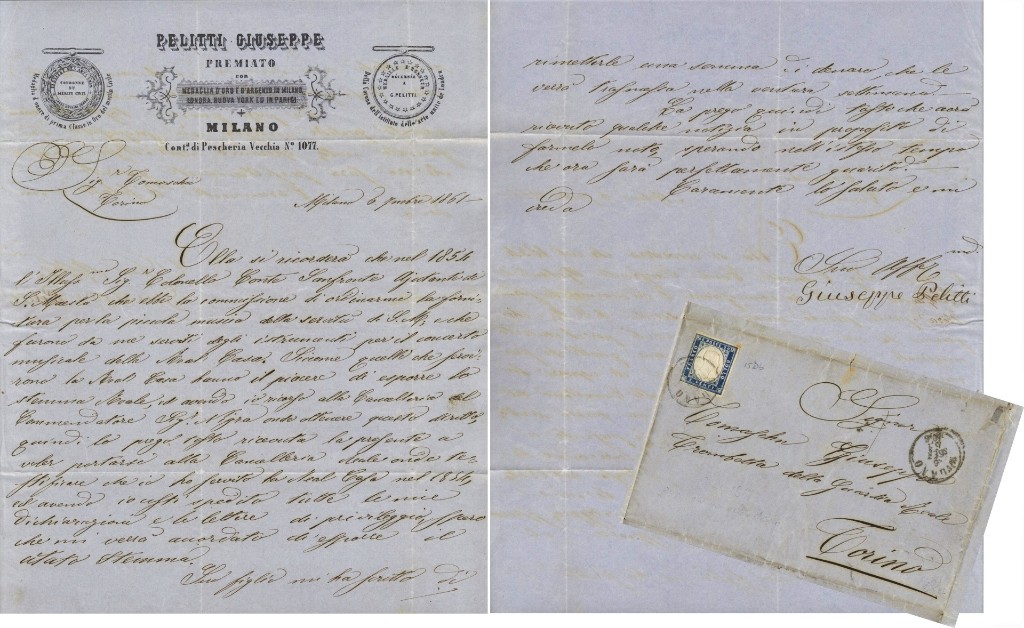 PELITTI GIUSEPPE
PREMIATO
con
MEDAGLIA D'ORO E D'ARGENTO IN MILANO
LONDRA, NUOVA YORK ED IN PARIGI
MILANO
Cont.ª di Pescheria Vecchia Nº 1077.
Sig.r Comaschi
Torino
Milano 6 9mbre 1861
Ella si ricorderà che nel 1854
l'Illmo Sig.r Conte Ajutante di
S. Maestà che ebbe la commissione di ordinarmi la forni-
tura per la piccola musica della serata di S.M. e che
furono da me serviti degli istrumenti per il concerto
musicale della Real Casa. Siccome quelli che provi-
rono la Real Casa hanno il piacere di esporre lo
stemma Reale, ed avendo io ricorso alla Cancelleria del
Commendatore Sig.r Nigra onde ottenere questo diritto,
quindi la prego tosto ricevuta la presente a
voler portarsi alla Cancelleria Reale onde te-
stificare che io ho servito la Real Casa nel 1854,
ed avendo io costì spedito tutte le mie
dichiarazioni e le lettere di privileggio, spero
che mi verrà accordato di esporre il
citato stemma.
Suo figlio mi ha scritto di
rimetterle una somma di denaro, che le
verrà trasmessa nella ventura settimana.
La prego quindi tosto che avrà
ricevuto qualche notizia in proposito di
farmelo noto, sperando nell'istesso tempo
che ora sarà perfettamente guarito.
Caramente lo saluto e mi
creda
Suo Aff.mo
Giuseppe Pelitti
MILANO
Signor
Comaschi Giuseppe
Trombetta della Guardia Reale
Torino